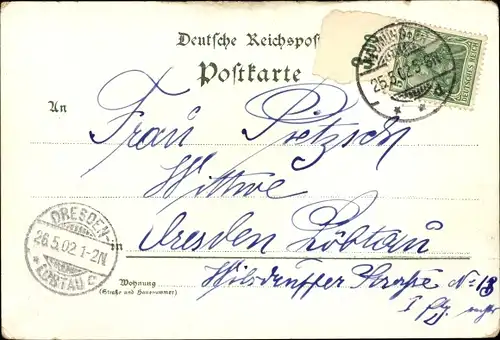 Deutsche Reichspost
Postkarte
25.5.02.5-6N
DEUTSCHES REICH
An
Frau Pietzsch
Wittwe
DRESDEN-
26.5.02.1-2N
* LÖBTAU c
in Dresden Löbtau
Wohnung
(Straße und Hausnummer)
Wilsdruffer Straße No 13
I